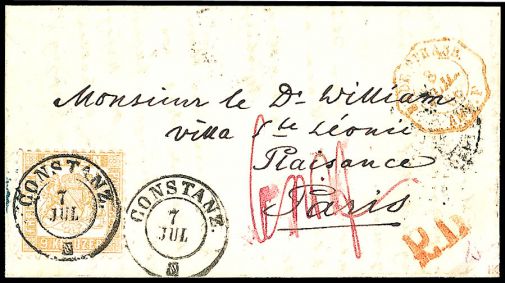 Monsieur le Dr. William
villa Ste Léonie
Plaisance
Paris
CONSTANZ
7
JUL
CONSTANZ
7
JUL
KREUZER
P.D.